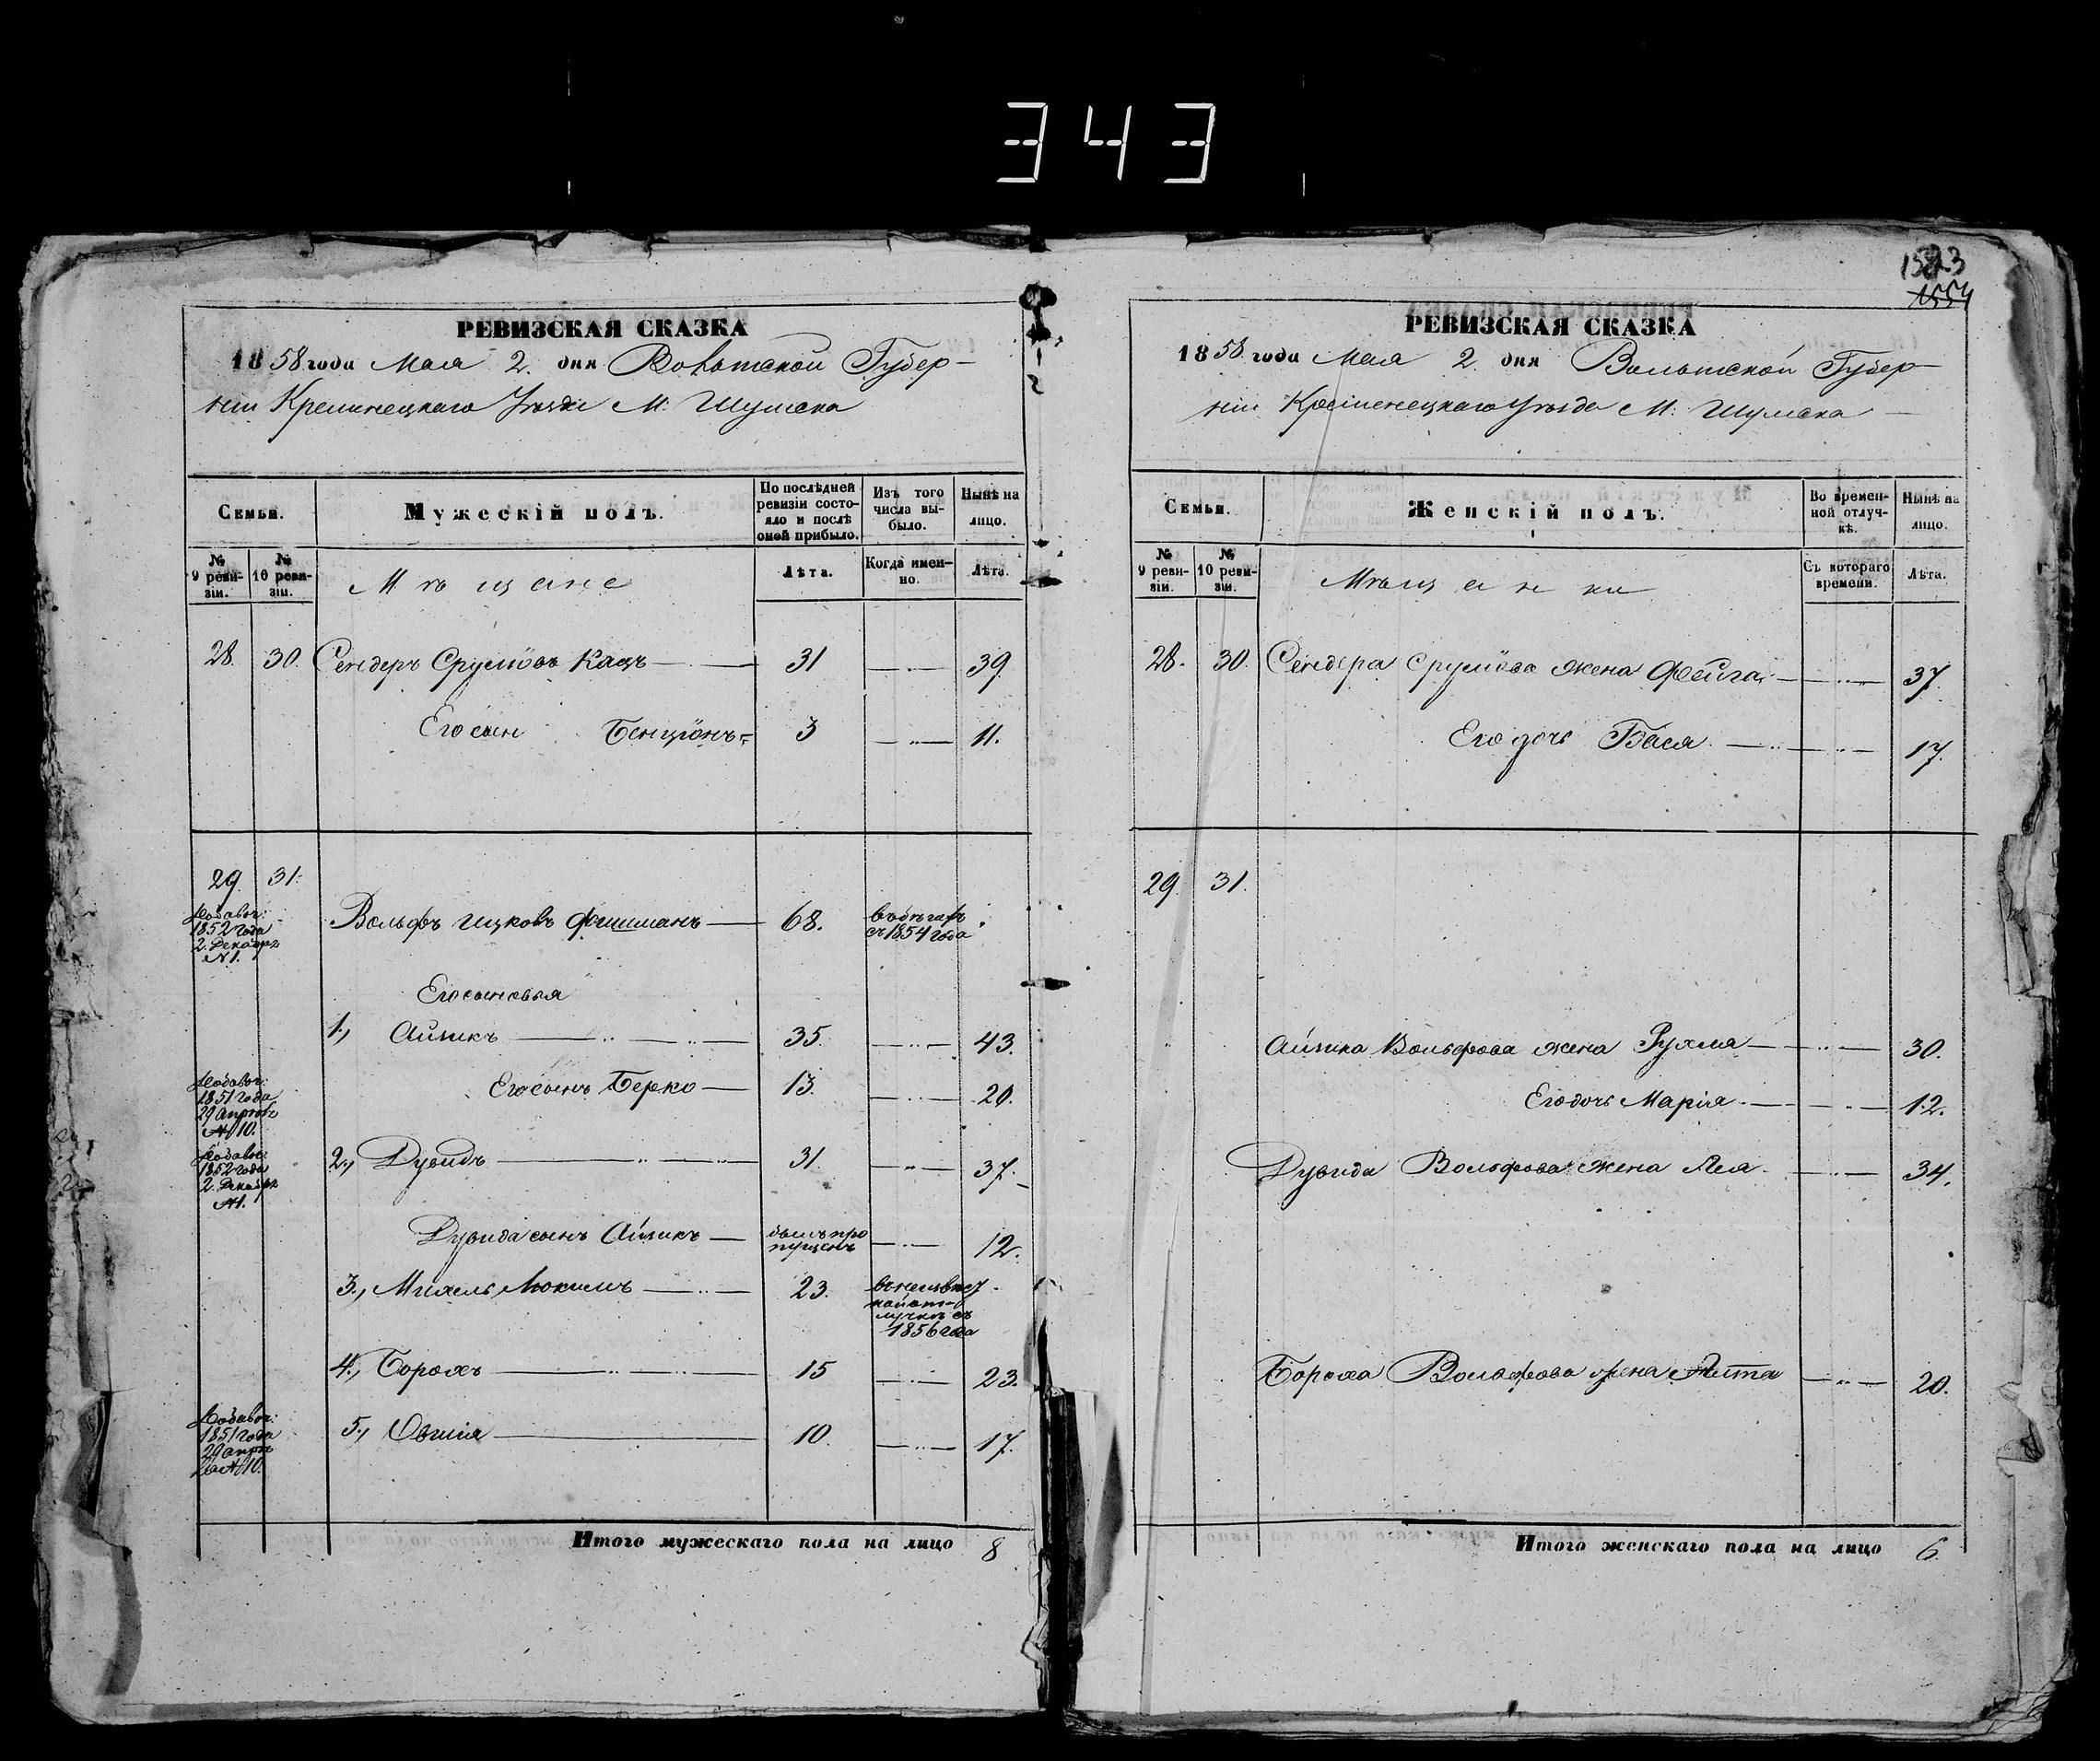 343
1583
1554
РЕВИЗСКАЯ СКАЗКА
1858 года Мая 2. дня Волынской Губер-
нiи Кременецкаго Уѣзда М: Шумска
Семьи.
Мужескій полъ.
По послѣдней ревизіи состояло и послѣ оной прибыло.
Изъ того числа выбыло.
Нынѣ на лицо.
№ 9 ревизіи.
№ 10 ревизіи.
Мѣщане
Лѣта.
Когда именно.
Лѣта.
28. 30. Сендеръ Срулiовъ Кацъ 31 39.
Его сын Бенцiонъ 3 11.
29. 31.
Добавоч: 1852 года 2. Декабря N 1.
Вольфъ Ицковъ Фишманъ 68. въ бѣгахъ съ 1854 года
Его сыновья
1., Айзикъ 35. 43.
Добавоч: 1851 года 29 Апрѣля N 10.
Его сынъ Берко 13. 20.
Добавоч: 1852 года 2. Декабря N 1.
2., Дувидъ 31. 37.
Дувида сынъ Айзикъ былъ пропущенъ 12.
3., Михель Мокимъ 23. съ 1856 года
4., Борохъ 15 23.
Добавоч: 1851 года 29 Апрѣля N 10.
5., Овшiя 10. 17.
Итого мужескаго пола на лицо 8
РЕВИЗСКАЯ СКАЗКА
1858 года Мая 2. дня Волынской Губер-
нiи Кременецкаго Уѣзда М: Шумска
Семьи.
Женскій полъ.
Во временной отлучкѣ.
Нынѣ на лицо.
№ 9 ревизіи.
№ 10 ревизіи.
Мѣщанки
Съ котораго времени.
Лѣта.
28. 30. Сендера Срулiова жена Фейга 37.
Его дочь Бася 17.
29. 31.
Айзика Вольфова жена Рухля 30.
Его дочь Марiя 12.
Дувида Вольфова жена Лея 34.
Бороха Вольфова жена 20.
Итого женскаго пола на лицо 6.